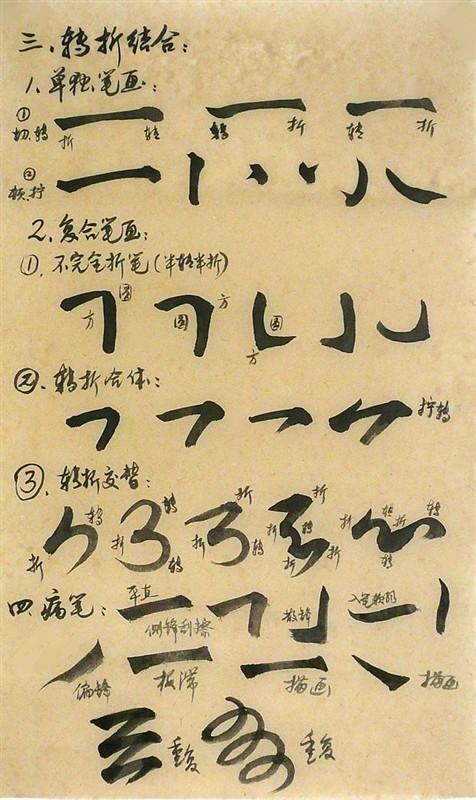 三、转折结合：
1.单独笔画：
① 切、转 折 转 转 折 转 折
② 顿、拧
2.复合笔画：
①、不完全折笔（半转半折）
方 圆 圆 方 圆 方
②、转折合体：
拧转
③、转折交替：
折 转 折 转 转 折 折 转 折 折 转 折 折 折 转 折 转 转
四、病笔：
平直 侧锋刮擦 散锋 入笔顿
偏锋 板滞 描画 描画
重复 重复